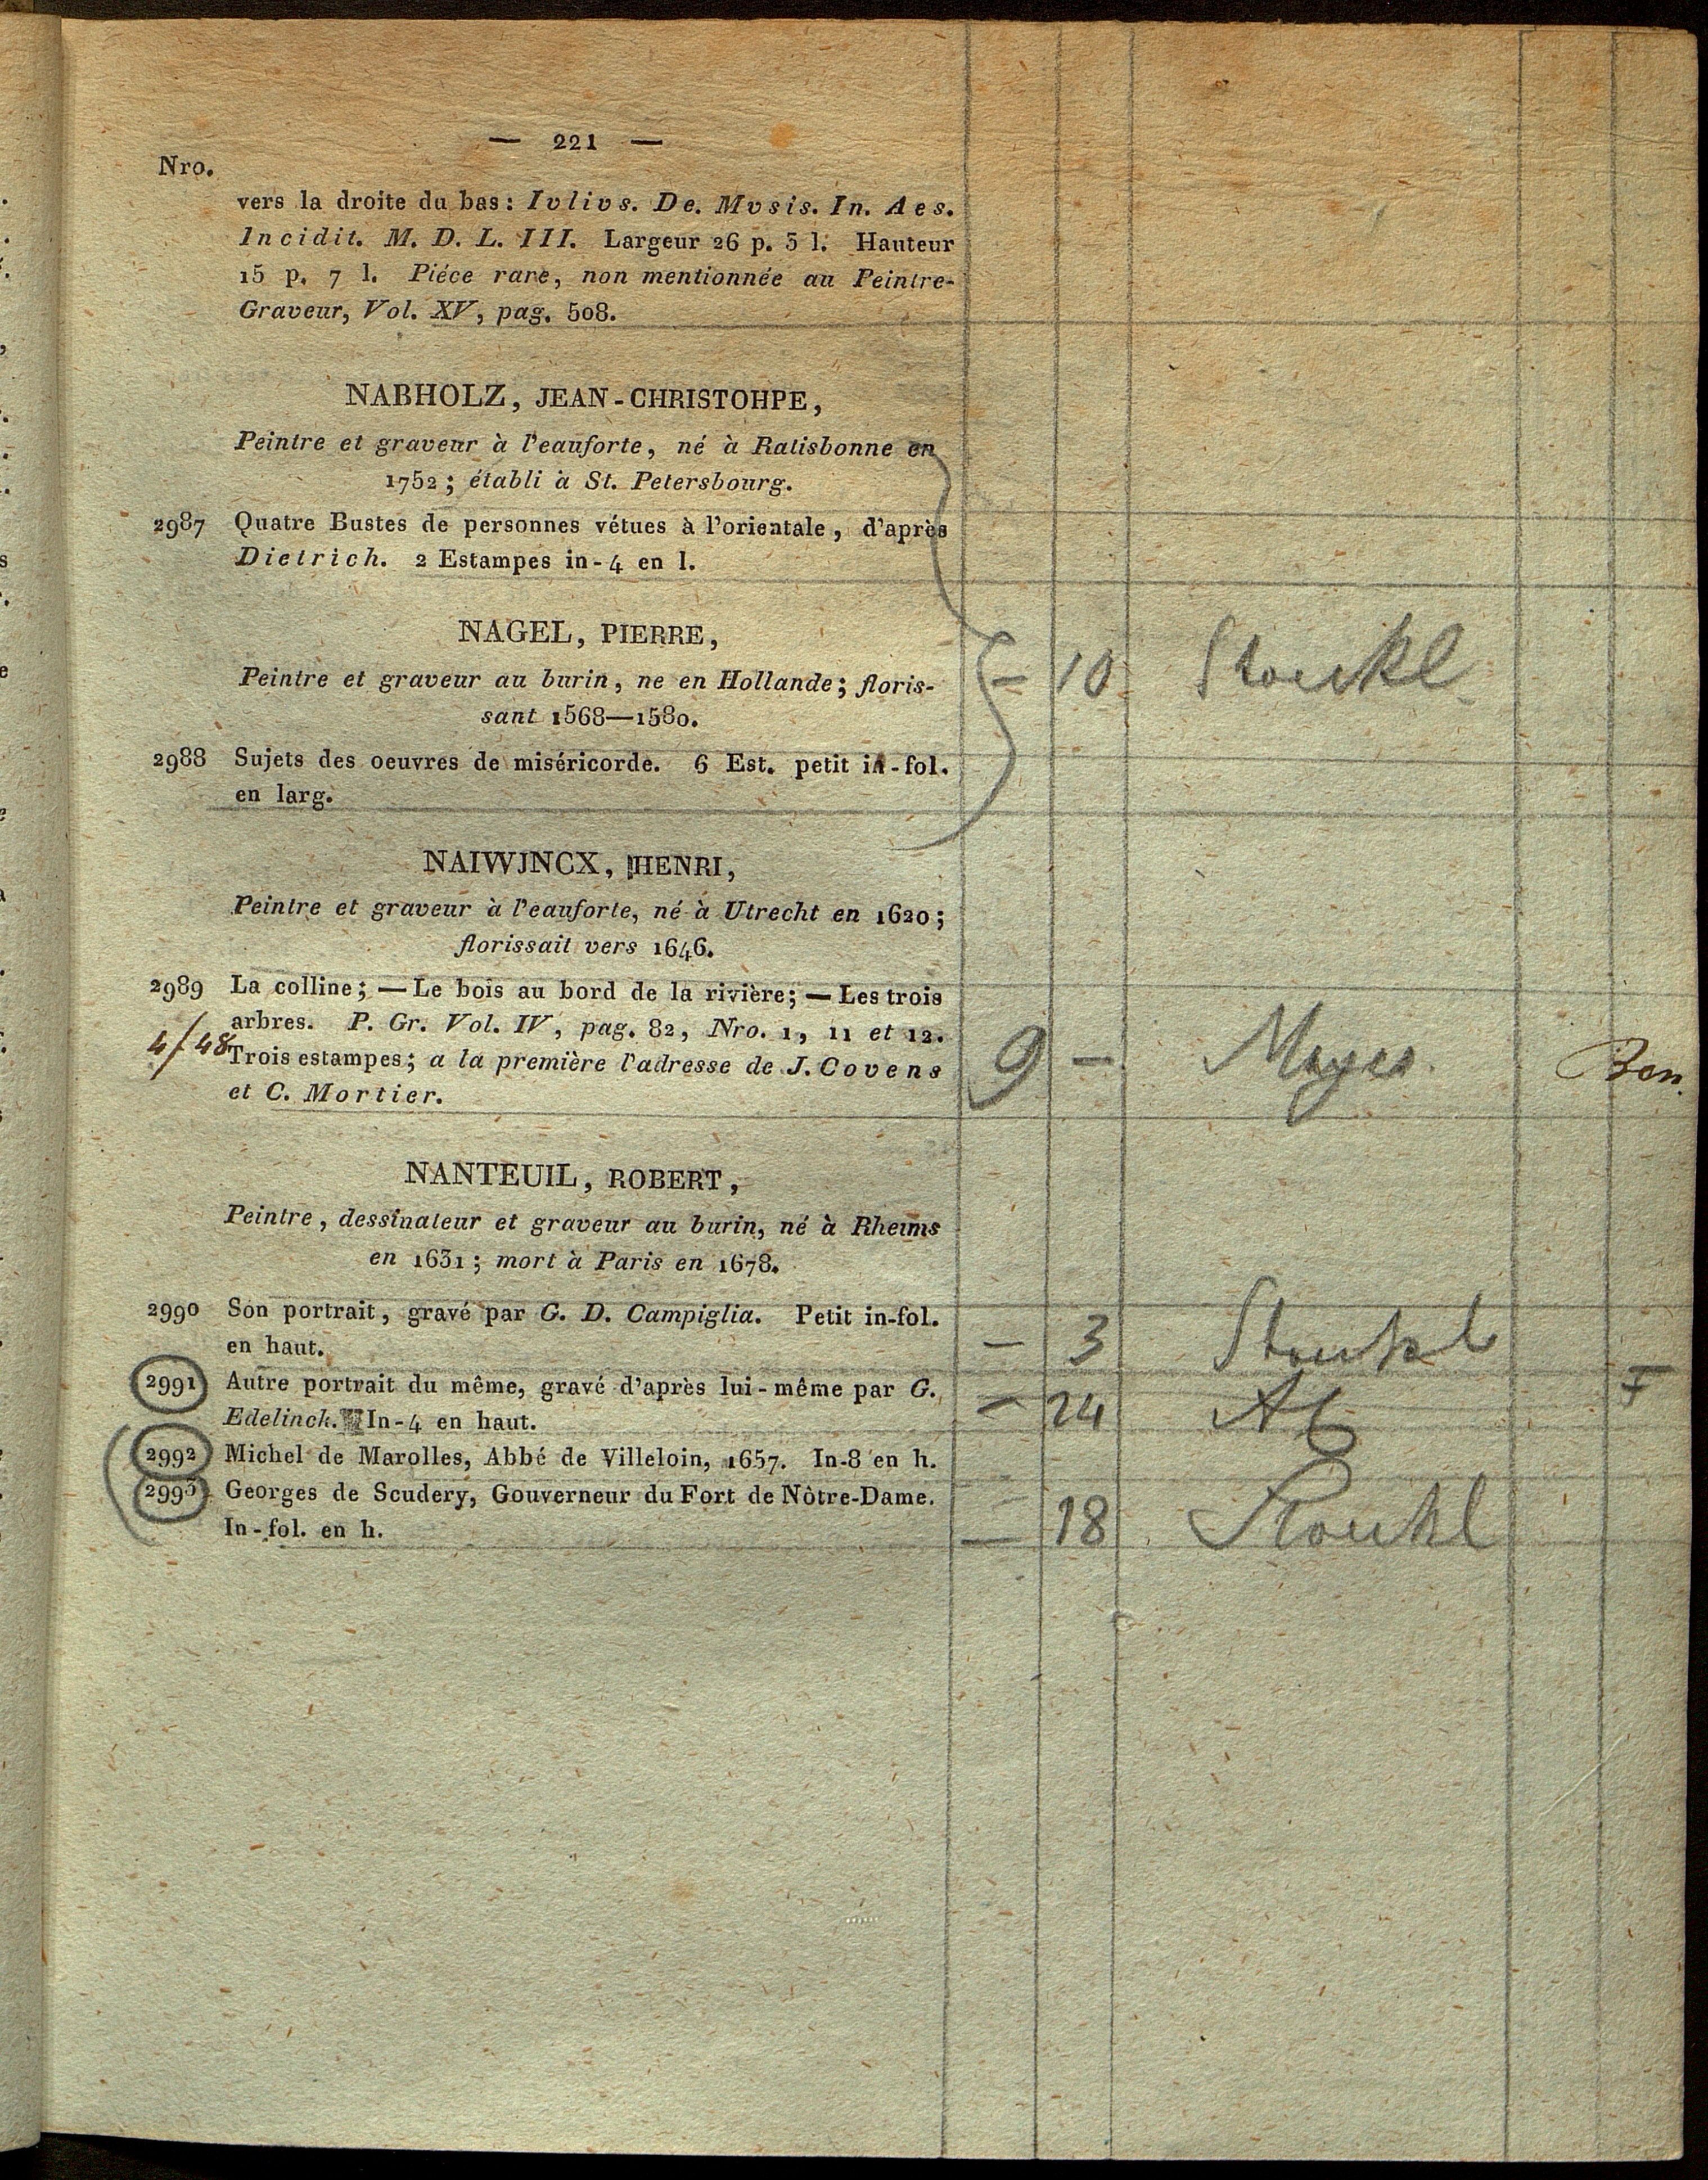 — 221 —
Nro.
vers la droite du bas: Ivlivs. De. Mvsis. In. Aes.
Incidit. M. D. L. III. Largeur 26 p. 5 l. Hauteur
15 p. 7 l. Piéce rare, non mentionnée au Peintre-
Graveur, Vol. XV, pag. 508.
NABHOLZ, JEAN-CHRISTOHPE,
Peintre et graveur à l'eauforte, né à Ratisbonne en
1752; établi à St. Petersbourg.
2987 Quatre Bustes de personnes vétues à l'orientale, d'après
Dietrich. 2 Estampes in-4 en l.
NAGEL, PIERRE,
Peintre et graveur au burin, ne en Hollande; floris-
sant 1568—1580.
— 10 Stoukl
2988 Sujets des oeuvres de miséricorde. 6 Est. petit in-fol.
en larg.
NAIWJNCX, HENRI,
Peintre et graveur à l'eauforte, né à Utrecht en 1620;
florissait vers 1646.
2989 La colline; — Le bois au bord de la rivière; — Les trois
arbres. P. Gr. Vol. IV, pag. 82, Nro. 1, 11 et 12.
4/48 Trois estampes; a la première l'adresse de J. Covens 9 — Ben.
et C. Mortier.
NANTEUIL, ROBERT,
Peintre, dessinateur et graveur au burin, né à Rheims
en 1631; mort à Paris en 1678.
2990 Son portrait, gravé par G. D. Campiglia. Petit in-fol.
en haut. — 3 Stoukl
2991 Autre portrait du même, gravé d'après lui-même par G. F
Edelinck. In-4 en haut. — 24
2992 Michel de Marolles, Abbé de Villeloin, 1657. In-8 en h.
2993 Georges de Scudery, Gouverneur du Fort de Nôtre-Dame.
In-fol. en h. — 18 Stoukl